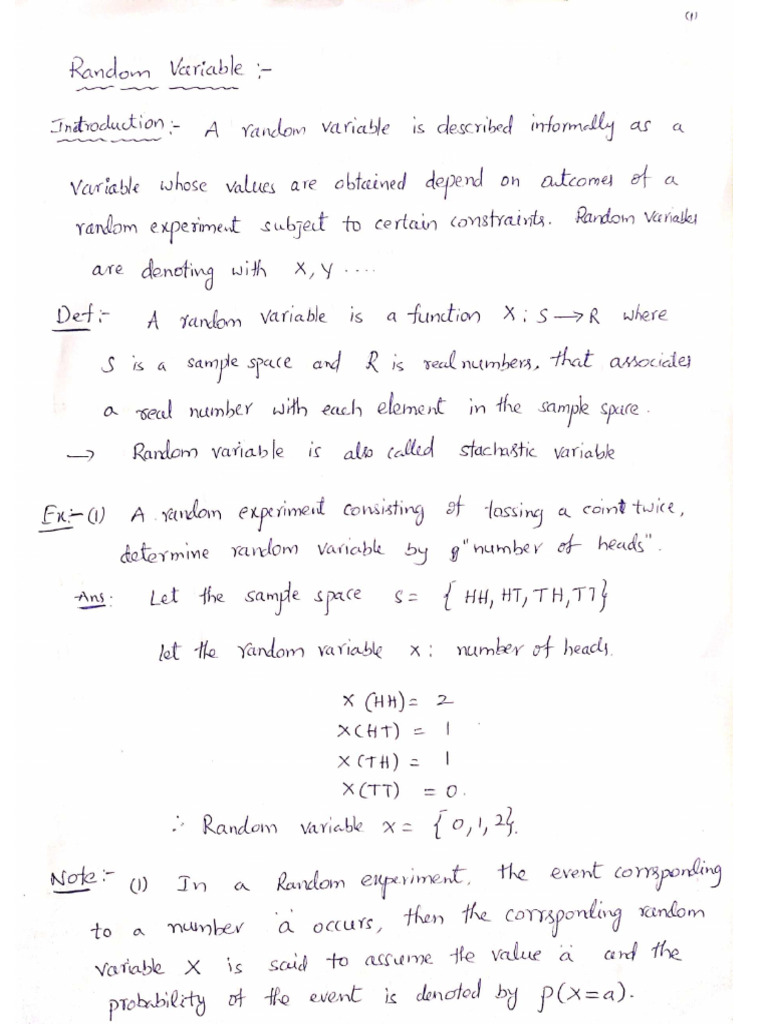 (1)
Random Variable :-
Introduction:- A random variable is described informally as a
variable whose values are obtained depend on outcomes of a
random experiment subject to certain constraints. Random variables
are denoting with X, Y ....
Def:- A random variable is a function X: S → R where
S is a sample space and R is real numbers, that associates
a real number with each element in the sample space.
→ Random variable is also called stachastic variable
Ex:- (1) A random experiment consisting of tossing a coin twice,
determine random variable by "number of heads".
Ans: Let the sample space S = { HH, HT, TH, TT}
let the random variable x: number of heads.
X (HH) = 2
X(HT) = 1
X (TH) = 1
X(TT) = 0.
∴ Random variable x = {0,1,2}.
Note:- (1) In a Random experiment, the event corrsponding
to a number 'a' occurs, then the corrsponding random
variable X is said to assume the value 'a' and the
probability of the event is denoted by P(X=a).